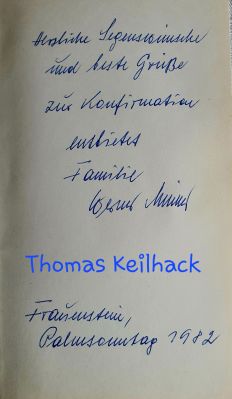 Herzliche Segenswünsche
und beste Grüße
zur Konfirmation
entbietet
Familie
Thomas Keilhack
Frauenstein,
Palmsonntag 1982